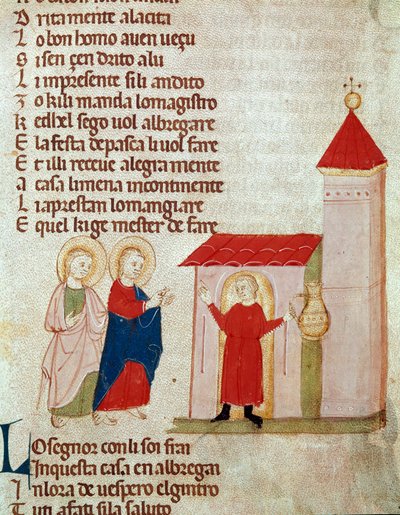 D ritamente alacita
L o bon homo aven veçu
S isen çen drito alu
L i impresente sili andito
Z o kili manda lo magistro
K ed bel sego vol albregare
E la festa de pasca li vol fare
E t illi receve alegramente
A casa li mena incontinente
L i aprestan lo mançare
E quel kige mester de fare
L O segnor con li soi frai
I nquesta casa en albregai
I n lora de vespero el gintro
T uti afati si la saluto